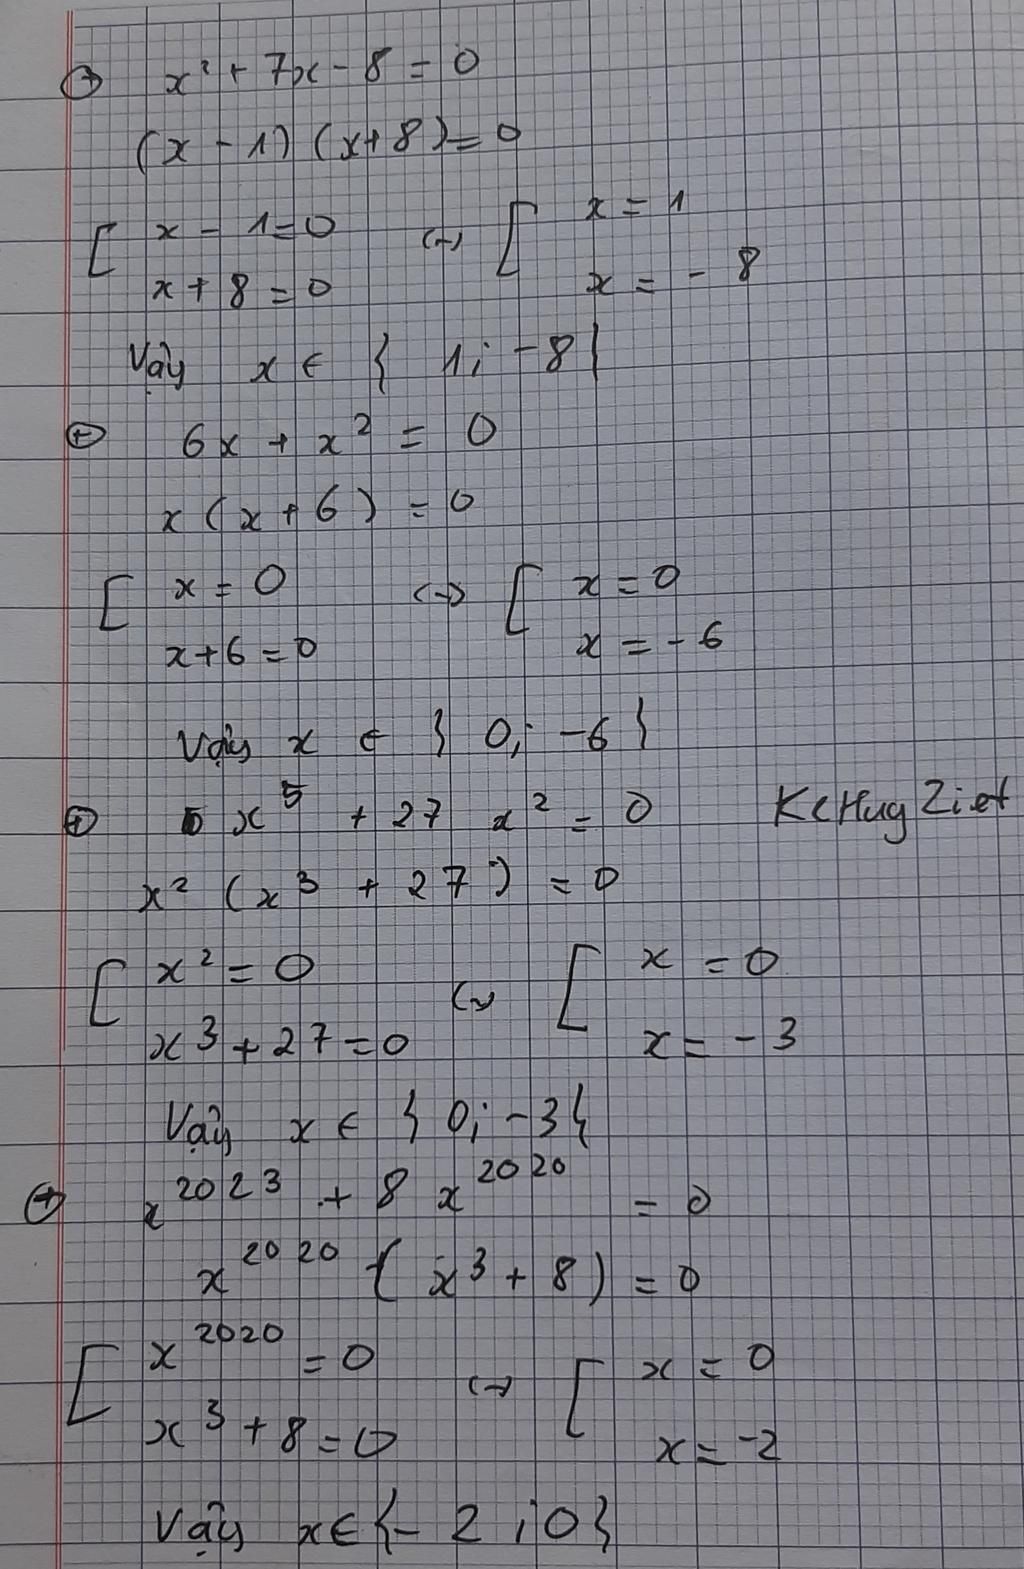 ⊕ x² + 7x - 8 = 0
(x - 1) (x+8) = 0
[ x - 1 = 0 (→) [ x = 1
x + 8 = 0 x = - 8
Vậy x ∈ { 1; -8 }
⊕ 6x + x² = 0
x (x + 6) = 0
[ x = 0 (→) [ x = 0
x + 6 = 0 x = - 6
Vậy x ∈ { 0; -6 }
⊕ x⁵ + 27 x² = 0 KcHugZiet
x² (x³ + 27) = 0
[ x² = 0 (→) [ x = 0
x³ + 27 = 0 x = - 3
Vậy x ∈ { 0; -3 }
⊕ x²⁰²³ + 8 x²⁰²⁰ = 0
x²⁰²⁰ (x³ + 8) = 0
[ x²⁰²⁰ = 0 (→) [ x = 0
x³ + 8 = 0 x = -2
Vậy x ∈ {- 2 ; 0}